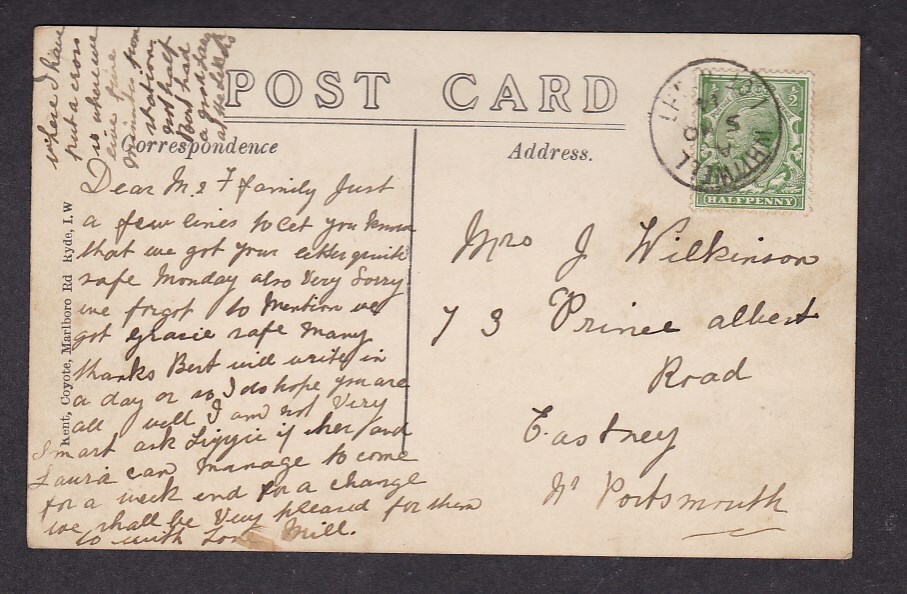 POST CARD
Correspondence
Address.
where I have
put a cross
is where we
live five
minutes from
station
not half
Bert had
a good day
at
Dear M & F family Just
a few lines to let you know
that we got your letter quite
safe Monday also Very Sorry
we forgot to Mention we
got Gracie safe Many
thanks Bert will write in
a day or so I do hope you are
all well I am not Very
Smart ask Liggie if her and
Laura can manage to come
for a week end for a change
we shall be Very pleased for them
to with Love Mill.
Kent, Coyote, Marlboro Rd Ryde, I.W
WHITWELL
½
HALFPENNY
Mrs J Wilkinson
73 Prince albert
Road
Eastney
Nr Portsmouth